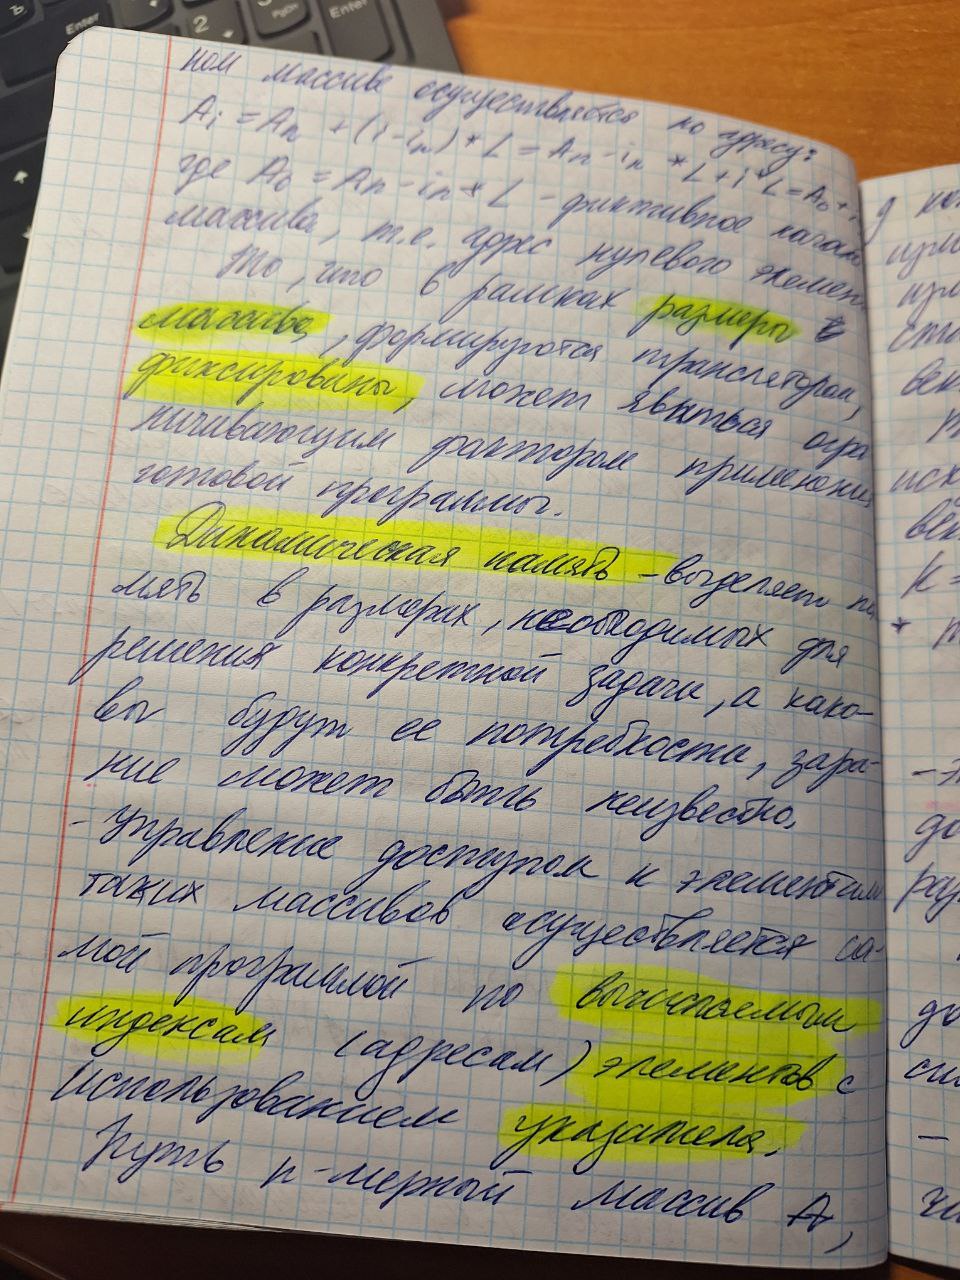 ном массиве осуществляется по адресу:
Ai = An + (i-in) * L = An - in * L + i * L = A0 + i
где A0 = An - in * L - фиктивное начало
массива, т.е. адрес нулевого элемен
То, что в рамках размеры в
массиве, формируются транслятором,
фиксированы, может явиться огра
ничивающим фактором применения
готовой программы.
Динамическая память - выделяет па
мять в размерах, необходимых для
решения конкретной задачи, а како-
вы будут ее потребности, зара-
ние может быть неизвестно.
- управление доступом к элементам
таких массивов осуществляется са-
мой программой по вычисляемым
индексам (адресам) элементов с
использованием указателя.
Путь n-мерный массив A,